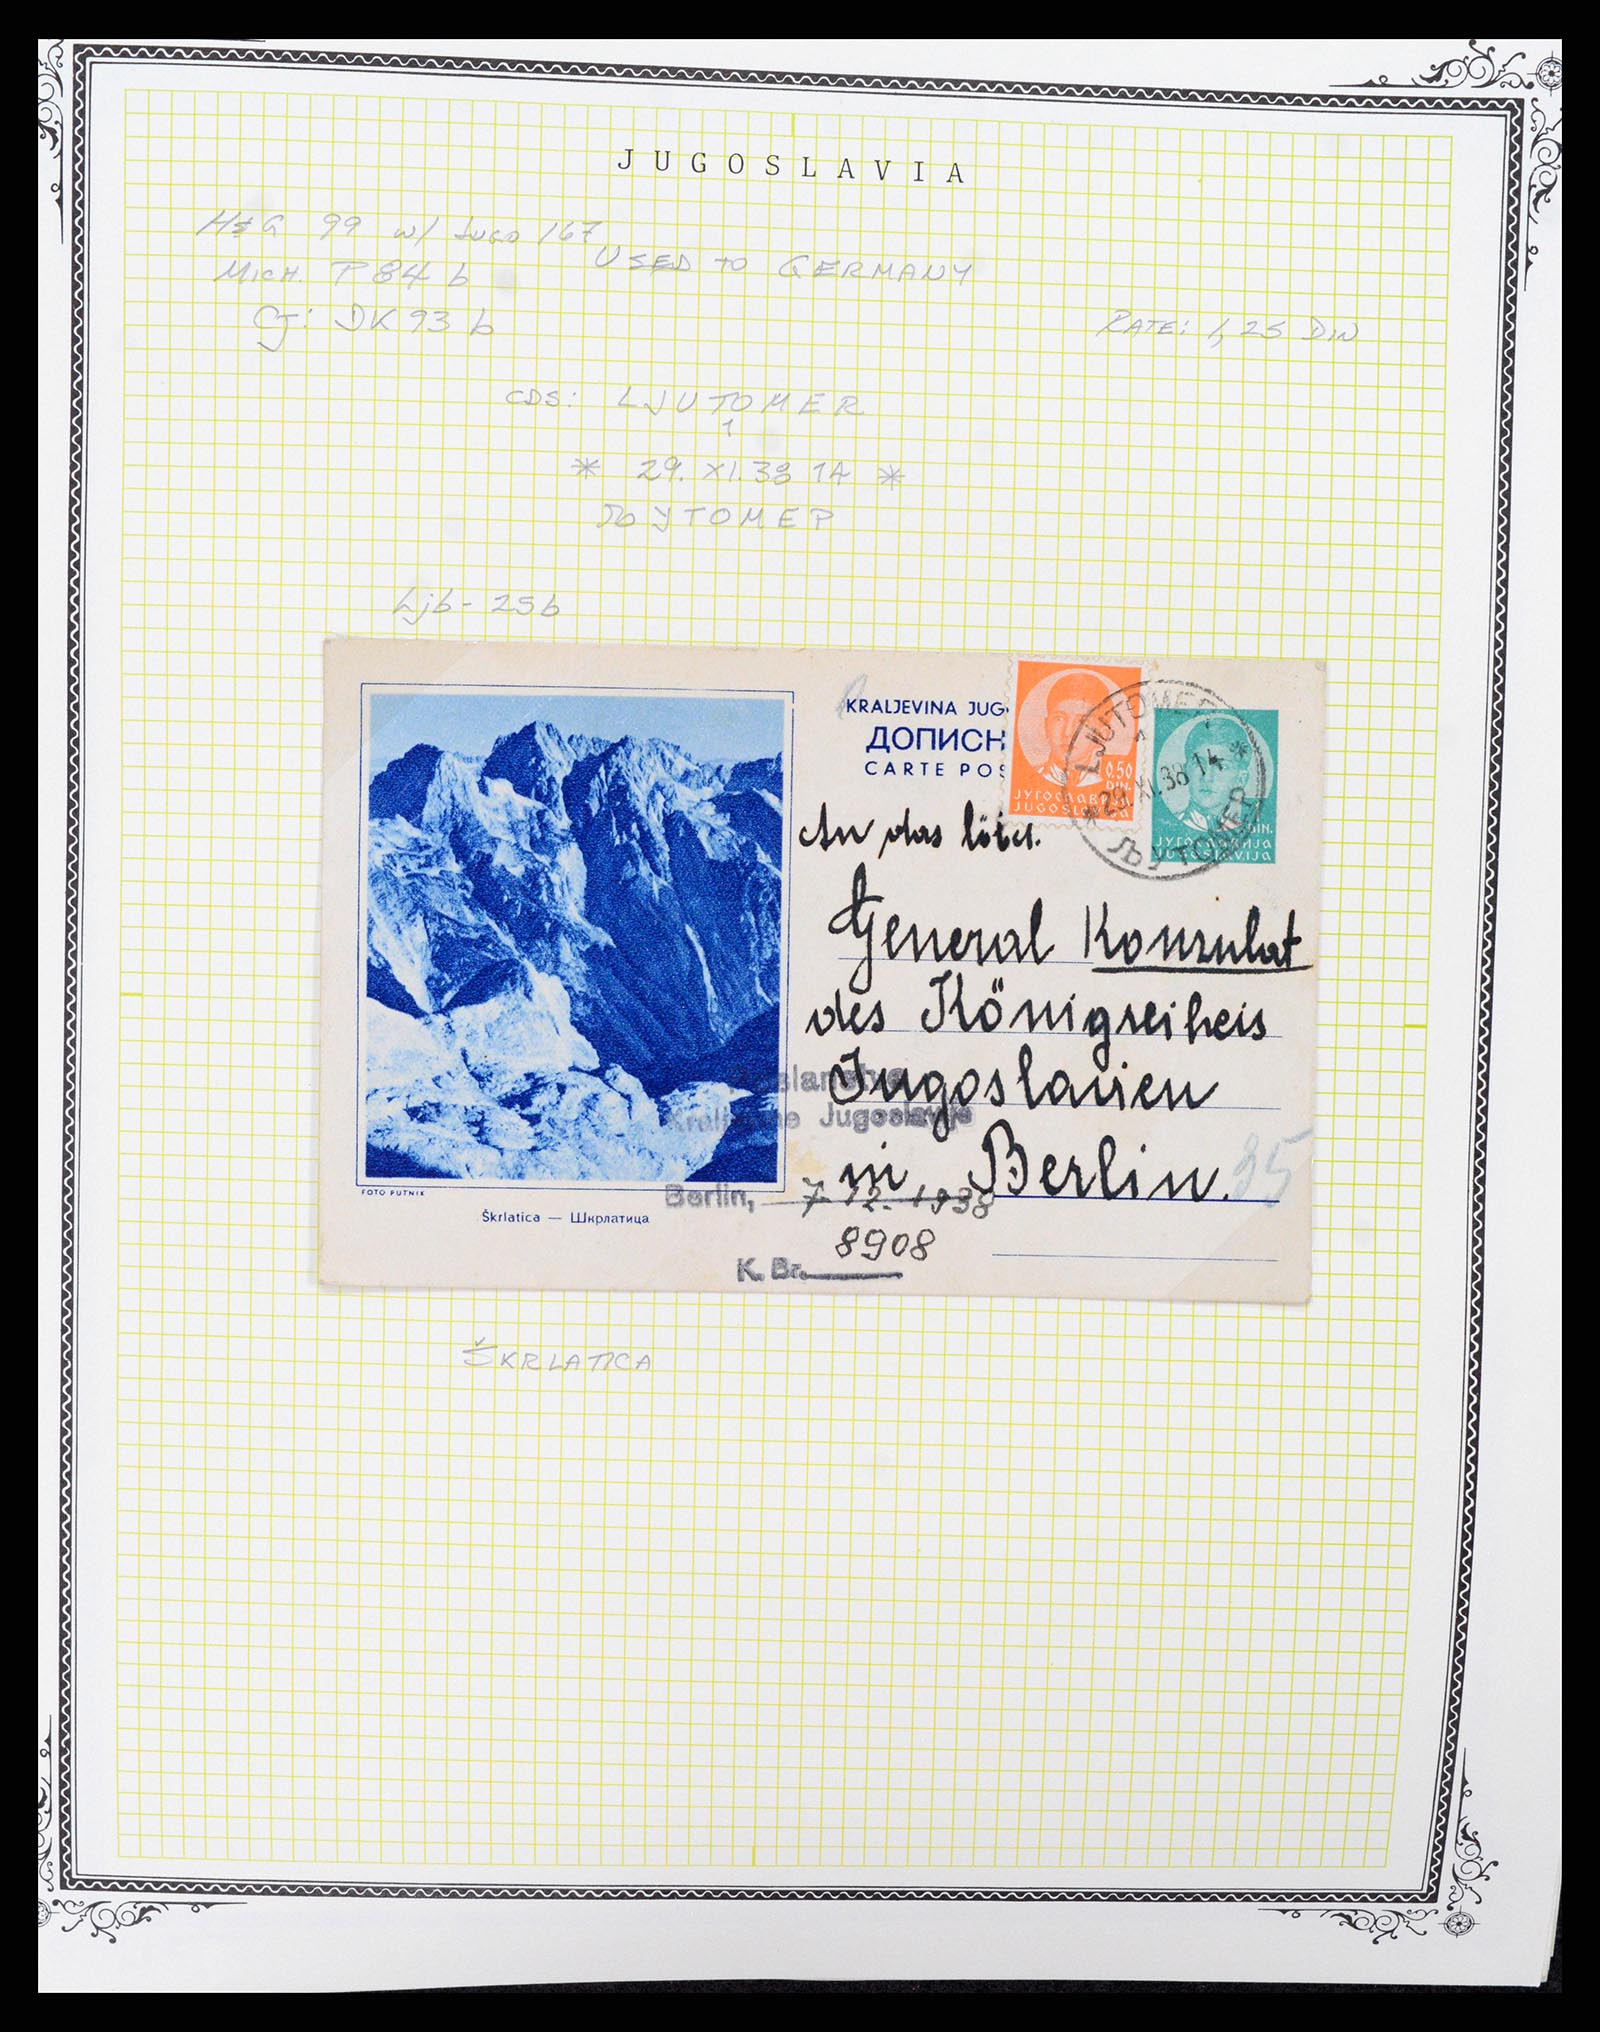 JUGOSLAVIA
H&G 99 w/ Jugo 167
USED TO GERMANY
MICH. P 84 b
CJ: DK 93 b
RATE: 1,25 DIN
CDS: LJUTOMER
1
* 29. XI. 38 14 *
ЉУТОМЕР
Ljb-25b
KRALJEVINA JUG
ДОПИСН
CARTE POS
0.50
DIN.
ЈУГОСЛАВИЈА
JUGOSLAVIJA
LJUTOMER
1
*29.XI.38 14*
ЉУТОМЕР
DIN.
ЈУГОСЛАВИЈА
JUGOSLAVIJA
An das löbl.
General Konsulat
des Königreiches
Jugoslavien
in Berlin.
35
Poslanstvo
Kraljevine Jugoslavije
Berlin, 7-12-1938
8908
K. Br.
FOTO PUTNIK
Škrlatica — Шкрлатица
ŠKRLATICA